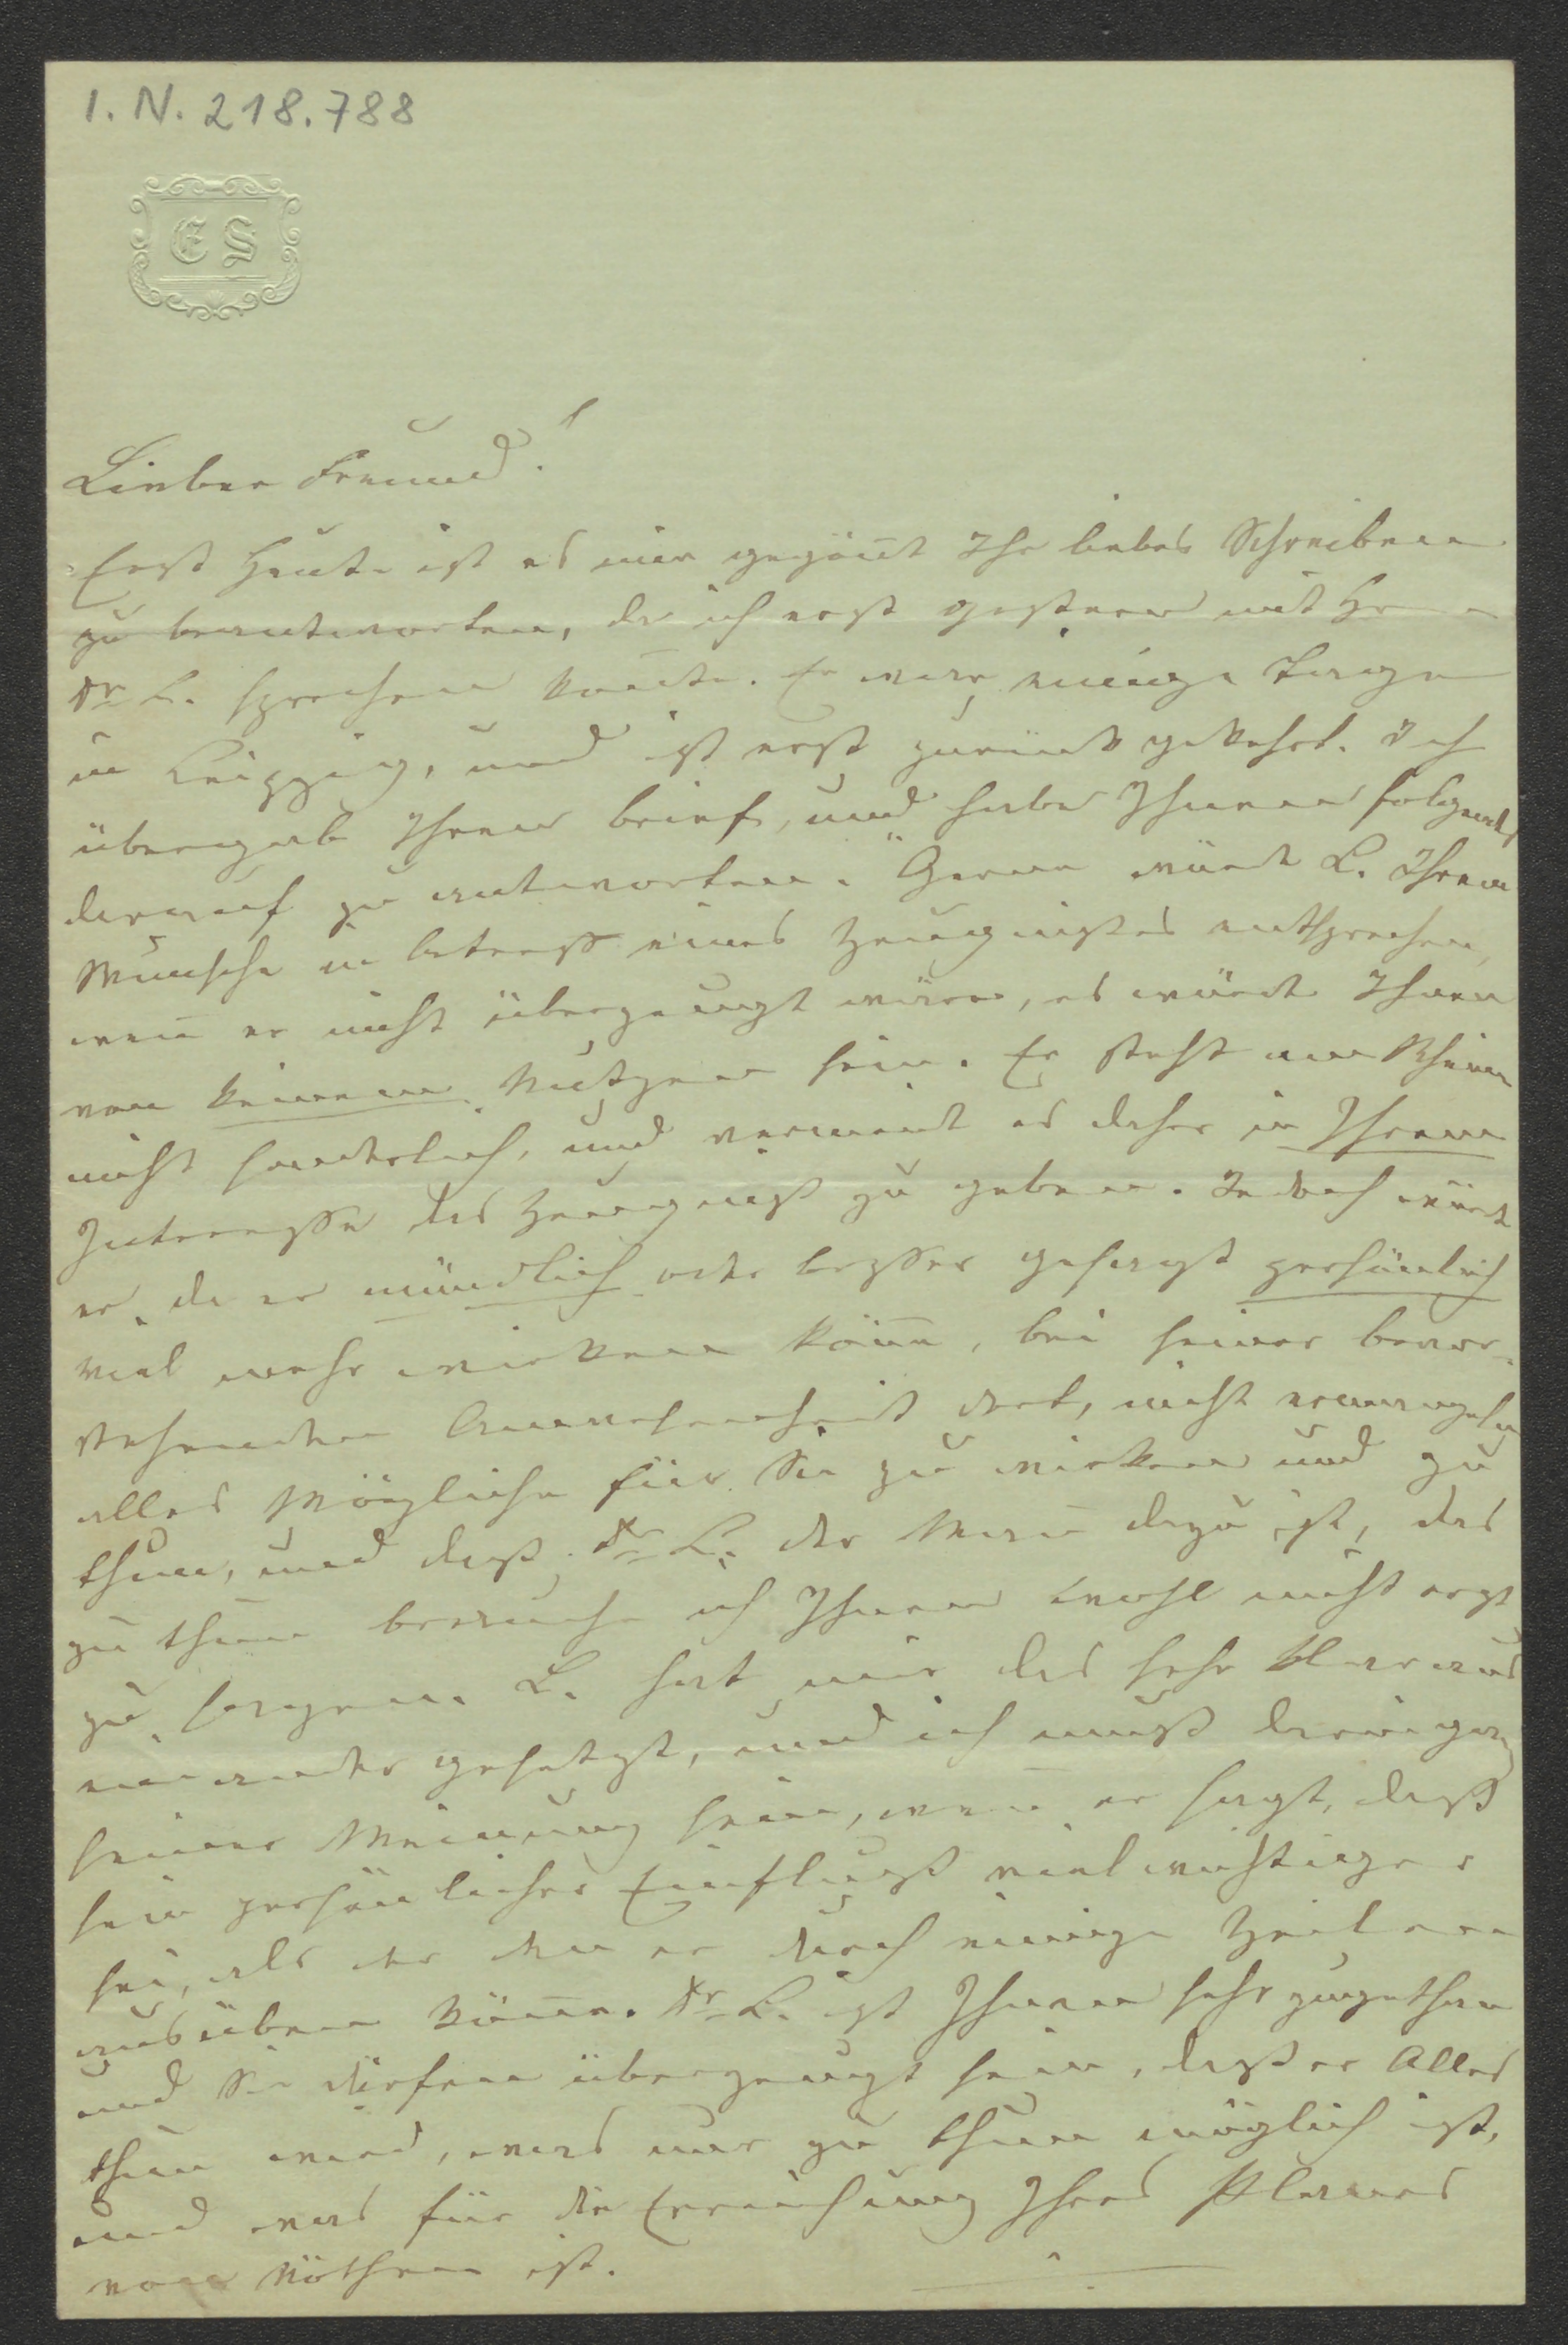 I. N. 218.788
E S
Lieber Freund!
Erst Heute ist es mir gegöñt Ihr liebes Schreiben
zu beantworten, da ich erst gestern mit H
Dr L. sprechen koñte. Er war einige Tage
in Leipzig, und ist erst zurück gekehrt. Ich
übergab Ihren brief, und habe Ihnen folgendes
darauf zu antworten. "Gerne würde L. Ihrem
Wunsche in betreff eines Zeugnißes entsprechen,
weñ er nicht überzeugt wäre, es würde Ihnen
von keinem Nutzen sein. Er steht am Rhein
nicht , und vermeint es daher in Ihrem
Interesse das Zeugniß zu geben. Jedoch würde
er, da er mündlich oder besser gesagt persönlich
viel mehr wirken köñe, bei seiner bevor-
stehenden Anwesenheit dort, nicht ermangeln
alles Mögliche für Sie zu wirken und zu
thun, und daß Dr L. der Mañ dazu ist, das
zu thun brauche ich Ihnen wohl nicht erst
zu sagen. L. hat mir das sehr klar aus
einander gesetzt, und ich muß darin ganz
seiner Meinung sein, weñ er sagt, daß
sein persönlicher Einfluß viel wichtiger
sei, als der den er durch einige Zeilen
ausüben köñe. Dr L. ist Ihnen sehr zugethan
und Sie dürfen überzeugt sein, daß er Alles
thun wird, was nur zu thun möglich ist,
und was für die Erreichung Ihres Planes
von Nöthen ist.